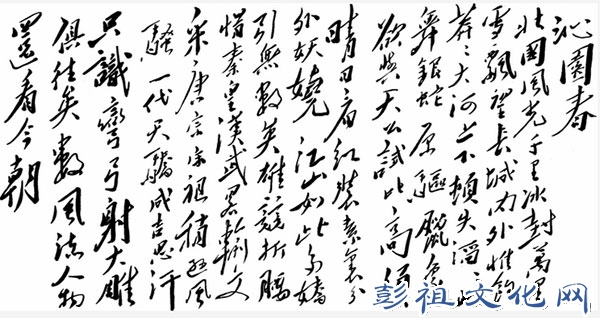 沁園春
北國風光千里冰封萬里
雪飄望長城内外惟餘
莽々大河上下頓失滔々山
舞銀蛇原驅臘象
欲與天公試比高須
晴日看紅裝素裹分
外妖嬈江山如此多嬌
引無數英雄競折腰
惜秦皇漢武畧輸文
采唐宗宋祖稍遜風
騷一代天驕成吉思汗
只識彎弓射大雕
俱往矣數風流人物
還看今朝
彭祖文化网